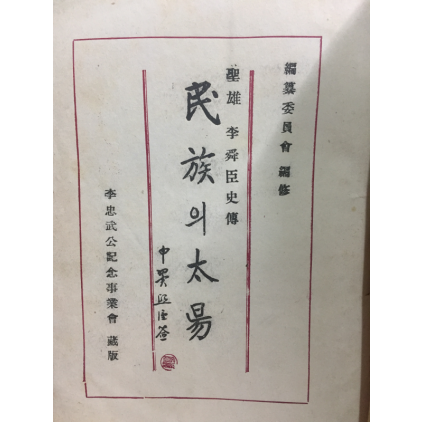 編纂委員會 編修
聖雄 李舜臣史傳
民族의太昜
李忠武公記念事業會 藏版